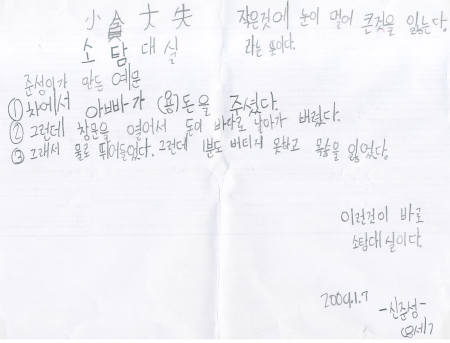 小貪大失 작은것에 눈이 멀어 큰것을 잃는다.
소탐대실 라는 뜻이다.
준성이가 만든 예문
① 차에서 아빠가 (용)돈을 주셨다.
② 그런데 창문을 열어서 돈이 바다로 날아가 버렸다.
③ 그래서 물로 뛰어들었다. 그런데 1분도 버티지 못하고 목숨을 잃었다.
이런것이 바로
소탐대실이다.
2009.1.7
-신준성-
(8세)